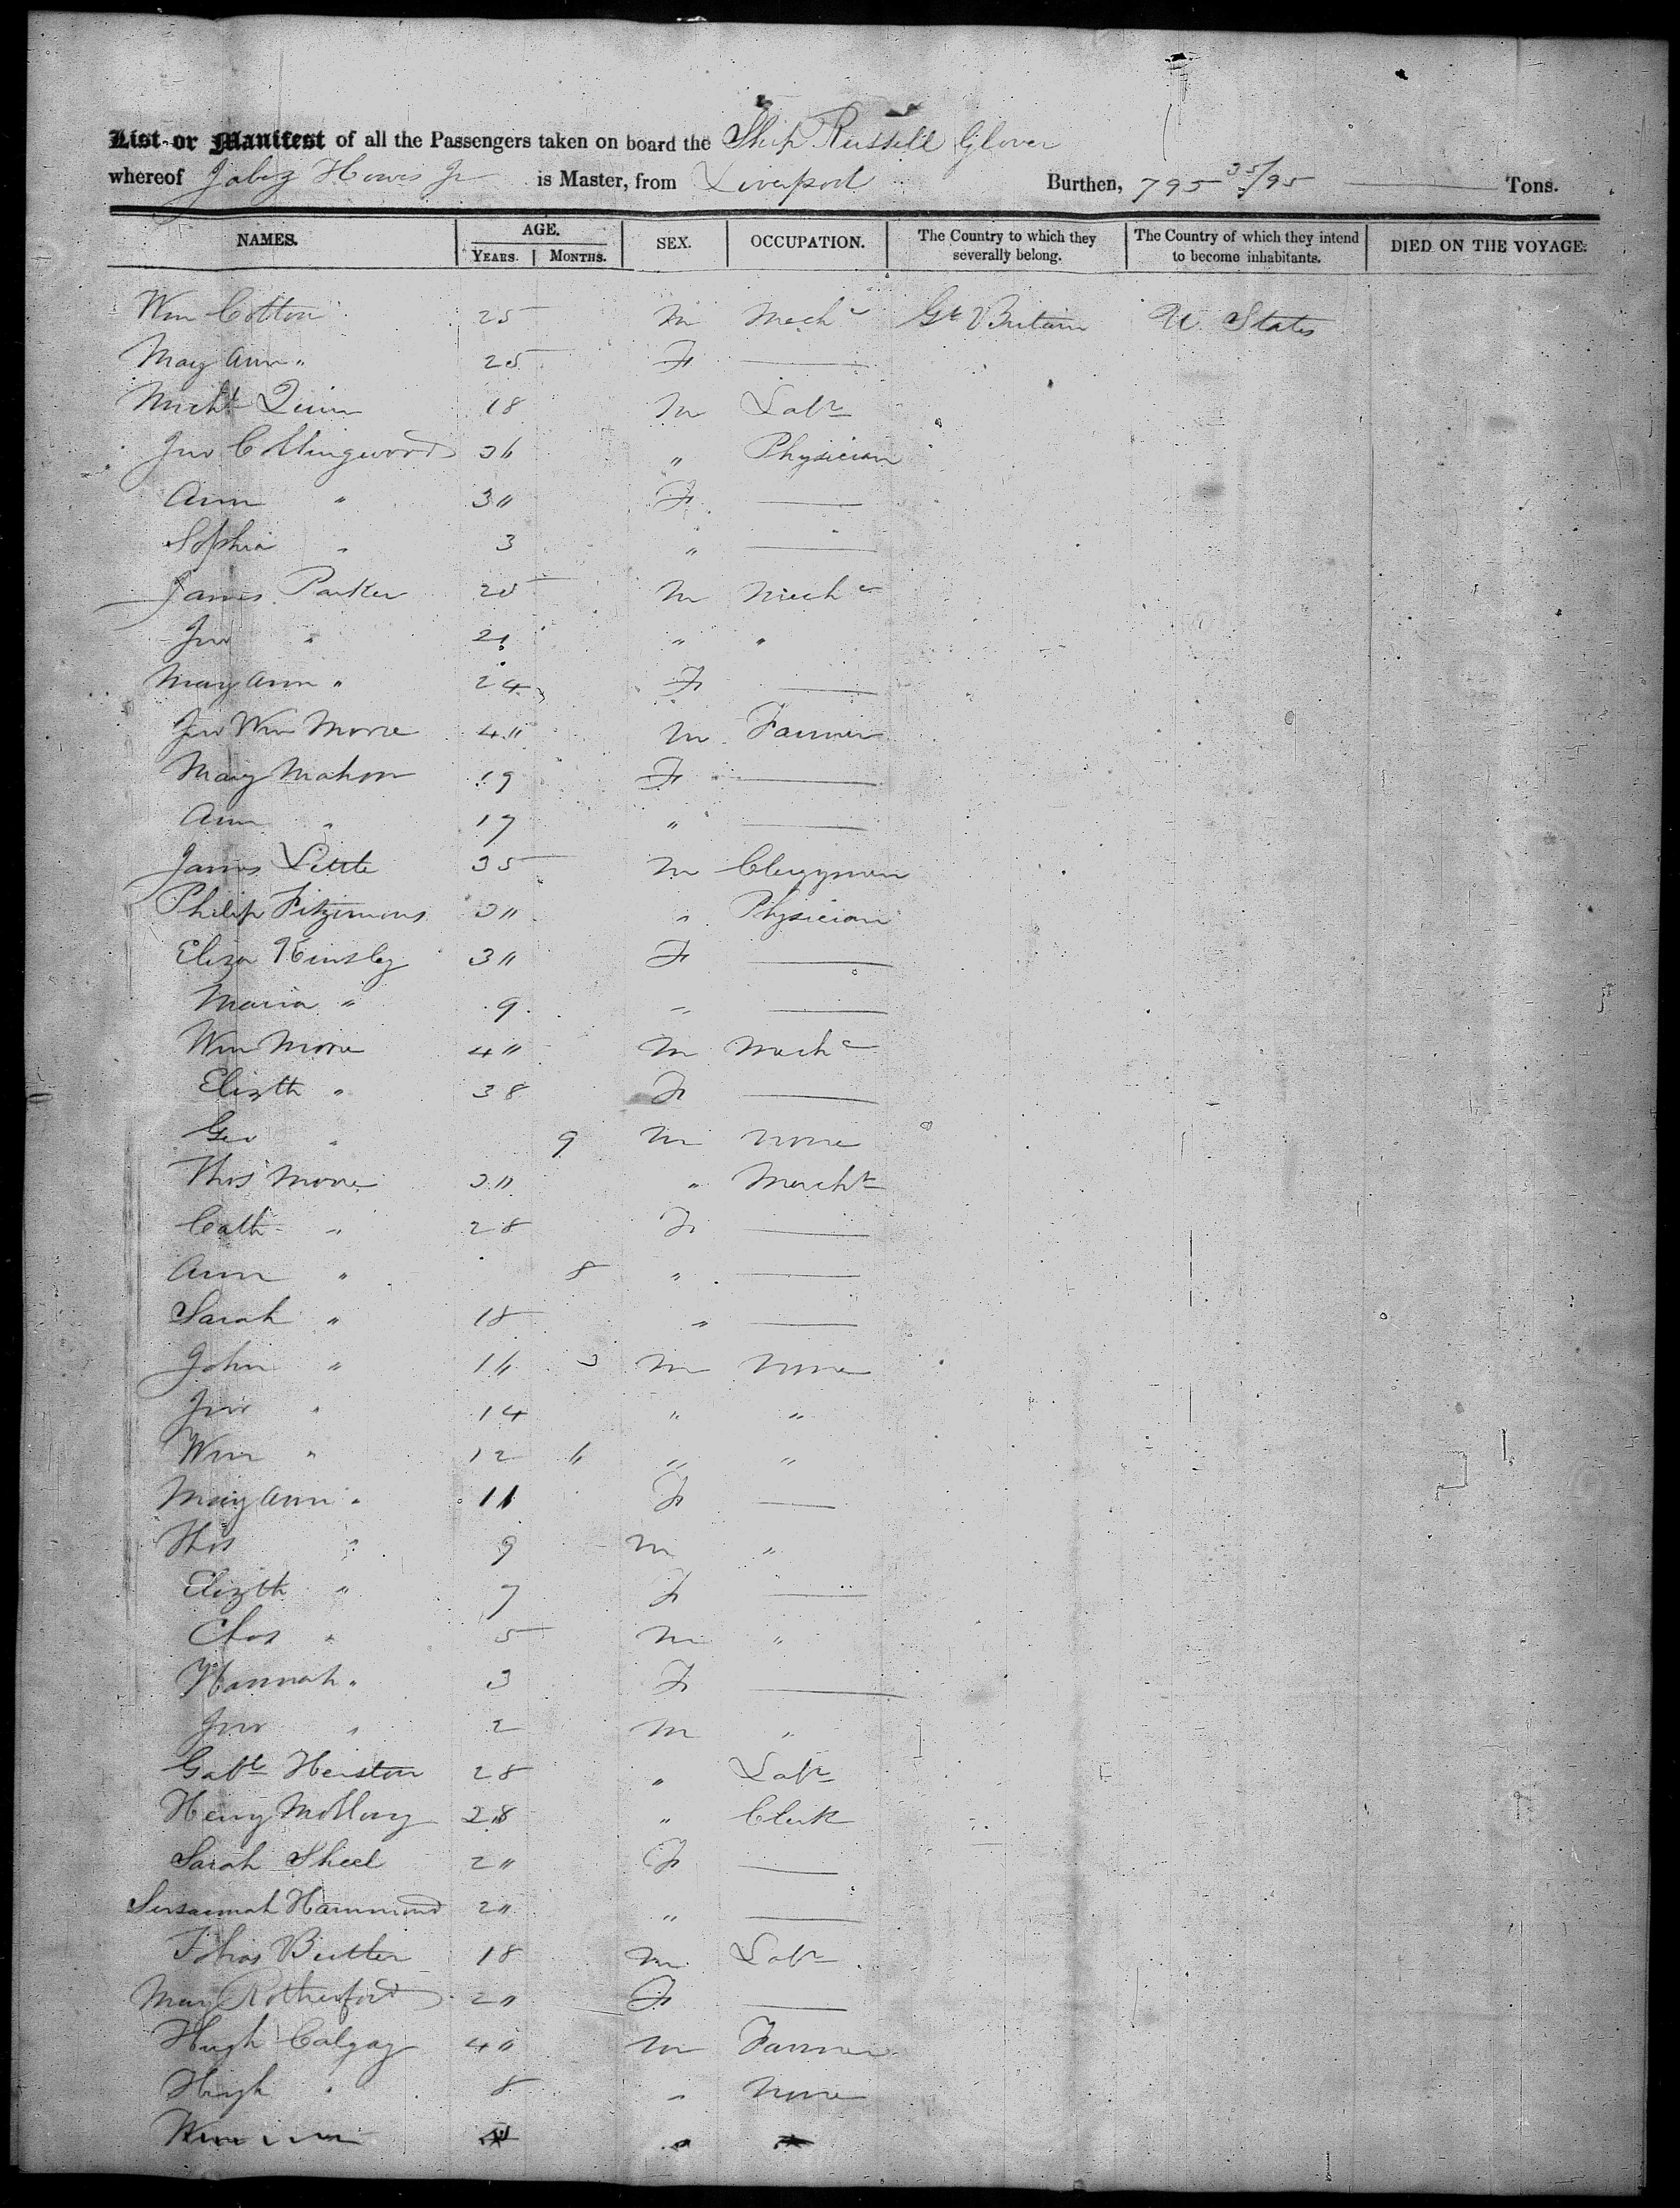 List or Manifest of all the Passengers taken on board the Ship Russell Glover
whereof Jabez Howes Jr is Master, from Liverpool Burthen, 795 35/95 Tons.
NAMES. AGE. YEARS. MONTHS. SEX. OCCUPATION. The Country to which they severally belong. The Country of which they intend to become inhabitants. DIED ON THE VOYAGE.
Wm Cotton 25 M Mechc Gt Britain U. States
Mary Ann " 25 F —
Michl Quinn 18 M Labr
Jno Collingwood 36 " Physician
Ann " 30 F —
Sophia " 3 " —
James Parker 25 M Mechc
Jno " 21 " "
Mary Ann " 24 F —
Jno Wm Moore 40 M Farmer
Mary Mahon 19 F —
Ann " 17 " —
James Little 35 M Clergyman
Philip Fitzimons 30 " Physician
Eliza Kinsley 30 F —
Maria " 9 " —
Wm Moore 40 M Mechc
Elizth " 38 F —
Geo " 9 M None
Thos Moore 30 " Mercht
Cath " 28 F —
Ann " 8 " —
Sarah " 18 " —
John " 16 3 M None
Jno " 14 " "
Wm " 12 6 " "
Mary Ann " 11 F —
Thos " 9 M "
Elizth " 7 F —
Chas " 5 M "
Hannah " 3 F —
Jno " 2 M "
Gabl Heiston 28 " Labr
Henry 28 " Clerk
Sarah Sheel 20 F —
Susannah Hammond 20 " —
Butler 18 M Labr
Mary Rotherford 20 F —
Hugh Calgay 40 M Farmer
Hugh " 8 " None